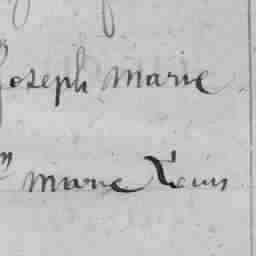 Joseph Marie
Marie Louis